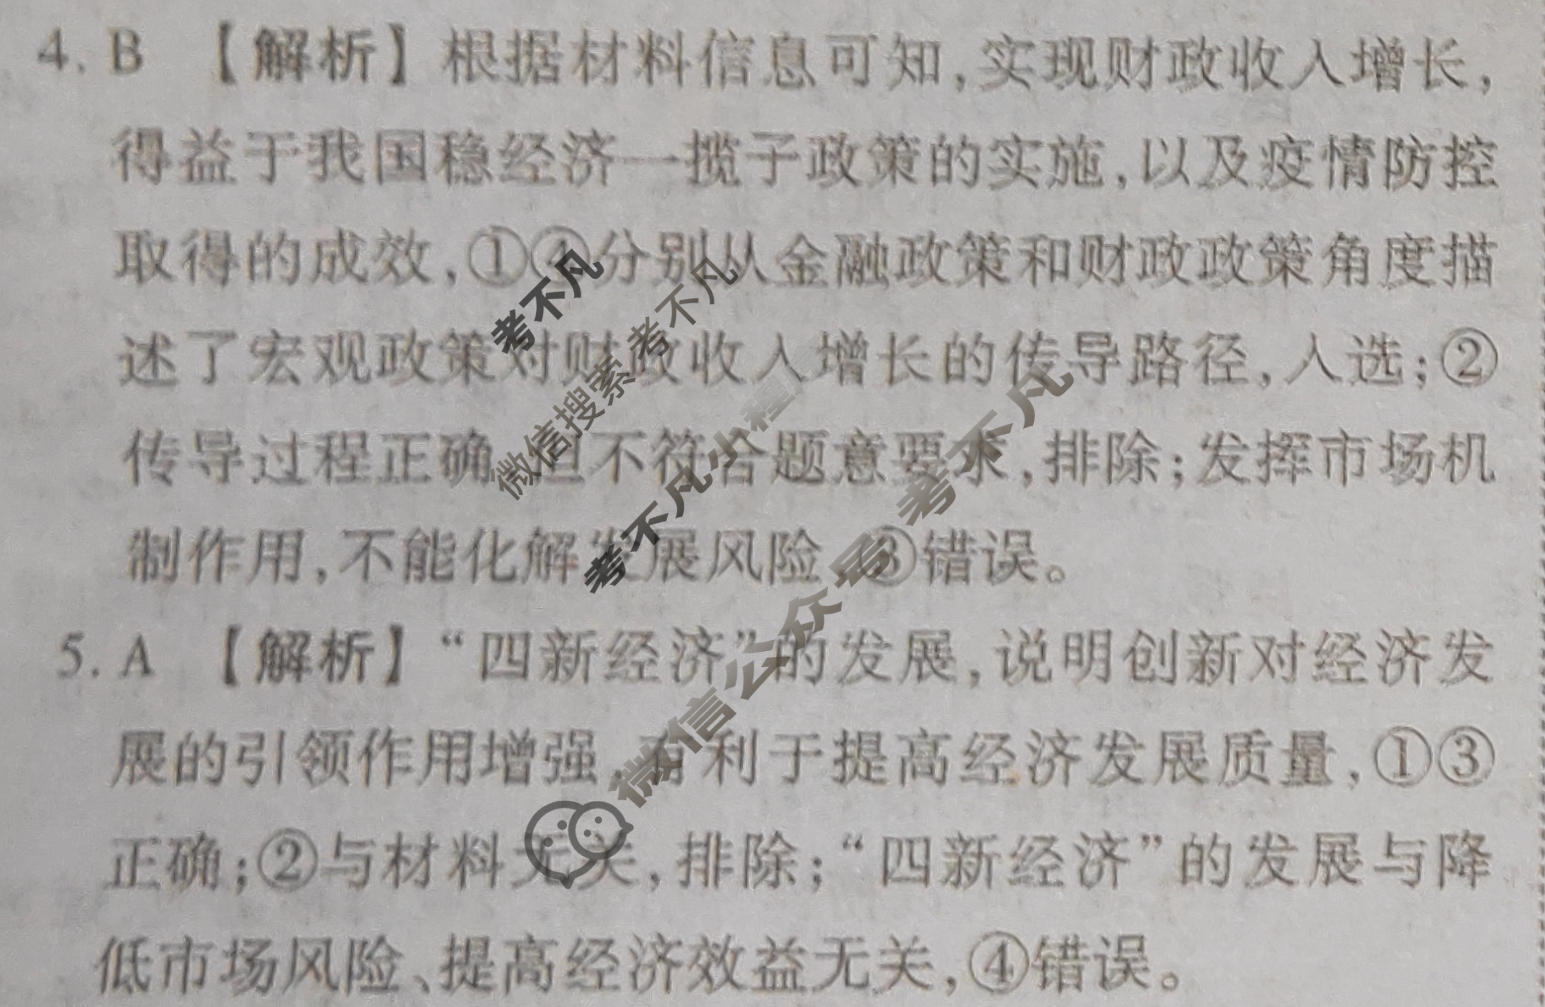 4. B 【解析】根据材料信息可知,实现财政收入增长,
得益于我国稳经济一揽子政策的实施,以及疫情防控
取得的成效,①④分别从金融政策和财政政策角度描
述了宏观政策对财政收入增长的传导路径,入选;②
传导过程正确,但不符合题意要求,排除;发挥市场机
制作用,不能化解发展风险,③错误。
5. A 【解析】“四新经济”的发展,说明创新对经济发
展的引领作用增强,有利于提高经济发展质量,①③
正确;②与材料无关,排除;“四新经济”的发展与降
低市场风险、提高经济效益无关,④错误。
考不凡
微信搜索考不凡
考不凡小程
微信公众号 考不凡